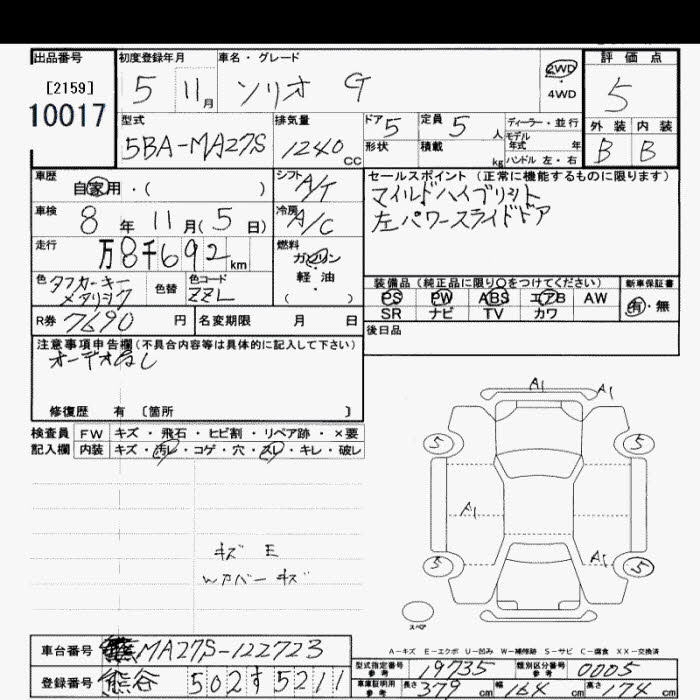 出品番号 初度登録年月 車名・グレード 評価点
[2159] 5 11月 ソリオ G 2WD・4WD 5
10017
型式 排気量 ドア 5 定員 5人 ディーラー・並行 外装 内装
5BA-MA27S 1240cc 形状 積載 kg モデル年式 年 B B
ハンドル 左・右
車歴 自家用・( ) シフト A/T セールスポイント (正常に機能するものに限ります)
車検 8年 11月(5日) 冷房 A/C マイルドハイブリット
左パワースライドドア
走行 万8千692km 燃料 ガソリン・軽油 ( )
色 タフカーキー メタリック 色替 色コード ZZL 装備品(純正品に限り○をつけてください) 新車保証書
PS PW ABS エアB AW 有・無
R券 7690円 名変期限 月 日 SR ナビ TV カワ
注意事項申告欄(不具合内容等は具体的に記入して下さい) 後日品
オーデオなし
修復歴 有 〔箇所 〕
検査員 FW キズ・飛石・ヒビ割・リペア跡・×要
記入欄 内装 キズ・汚レ・コゲ・穴・スレ・キレ・破レ
A1 A1
5 5
A1
A1
5 5
キズ E
Wアバーキズ
スペア
A-キズ E-エクボ U-凹み W-補修跡 S-サビ C-腐食 XX-交換済
車台番号 MA27S-122723 型式指定番号 参考 19735 類別区分番号 参考 0005
登録番号 熊谷 502す5211 車庫証明用 参考 長さ 379cm 幅 164cm 高さ 174cm